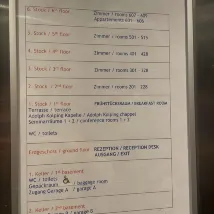 6. Stock / 6th floor Zimmer / rooms 601 - 605
Appartements 601 - 605
5. Stock / 5th floor Zimmer / rooms 501 - 519
4. Stock / 4th floor Zimmer / rooms 401 - 428
3. Stock / 3rd floor Zimmer / rooms 301 - 328
2. Stock / 2nd floor Zimmer / rooms 201 - 328
1. Stock / 1st floor FRÜHSTÜCKSRAUM / BREAKFAST ROOM
Terrasse / terrace
Adolph Kolping Kapelle / Adolph Kolping chapel
Seminarräume 1 - 3 / conference rooms 1 - 3
WC / toilets
Erdgeschoß / ground floor REZEPTION / RECEPTION DESK
AUSGANG / EXIT
1. Keller / 1st basement
WC / toilets
Gepäckraum / baggage room
Zugang Garage A / garage A
2. Keller / 2nd basement